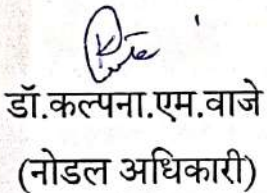 डॉ.कल्पना.एम.वाजे
(नोडल अधिकारी)